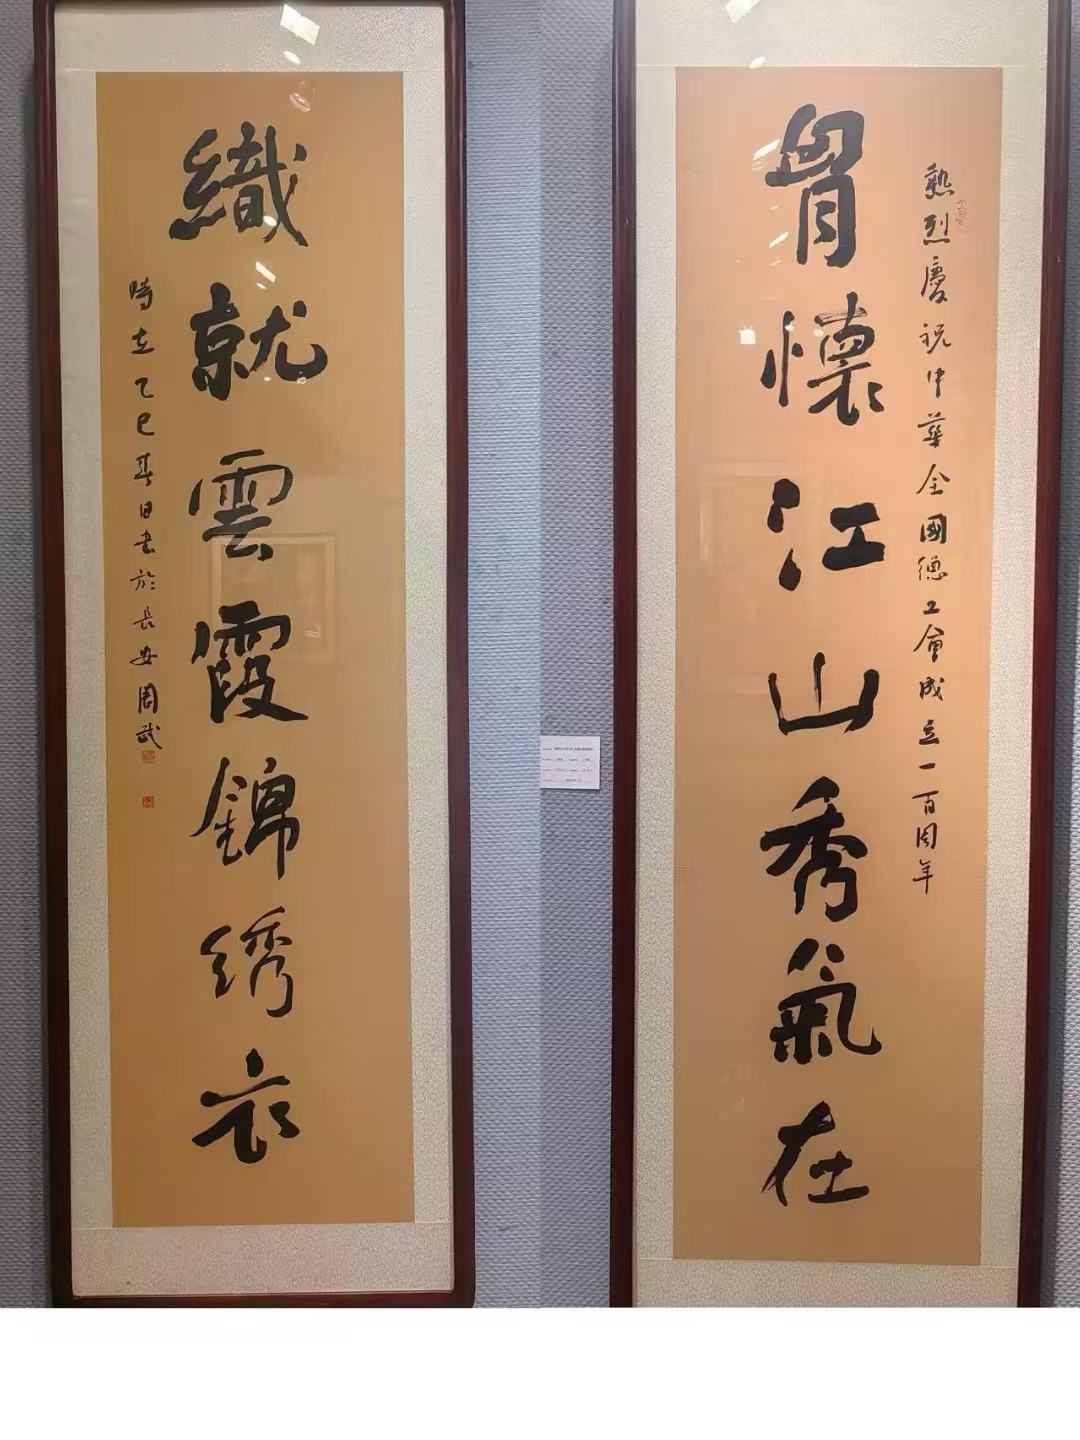 熱烈慶祝中華全國總工會成立一百周年
胷懷江山秀氣在
織就雲霞錦绣衣
時在乙巳春日书於長安周武